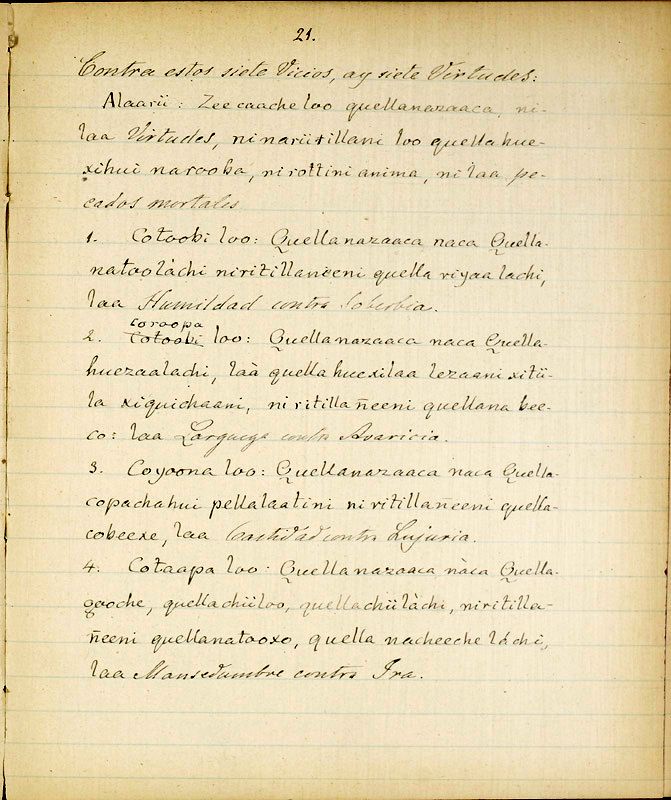 21.
Contra estos siete Vicios, ay siete Virtudes:
Alaarii: Zeecaache loo quellanazaaca, ni-
laa Virtudes, ninariitillani loo quellahue-
xihui narooba, nirottini anima, ni laa pe-
cados mortales
1. Cotoobi loo: Quellanazaaca naca Quella-
natoolàchi niritillanëeni quella riyaalachi,
laa Humildad contra Soberbia.
coroopa
2. Cotoobi loo: Quellanazaaca naca Quella-
huezaalachi, laà quellahuexilaa lezaani xitii-
la xiquichaani, niritillañeeni quellana bee-
co: laa Largueza contra Avaricia.
3. Coyoona loo: Quellanazaaca naca Quella-
copachahui pellalaatini niritillañeeni quella-
cobeexe, laa Castidad contra Lujuria.
4. Cotaapa loo: Quellanazaaca nàca Quella-
gooche, quellachiiloo, quellachiilàchi, niritilla-
ñeeni quellanatooxo, quella nacheeche láchi,
laa Mansedumbre contra Ira.